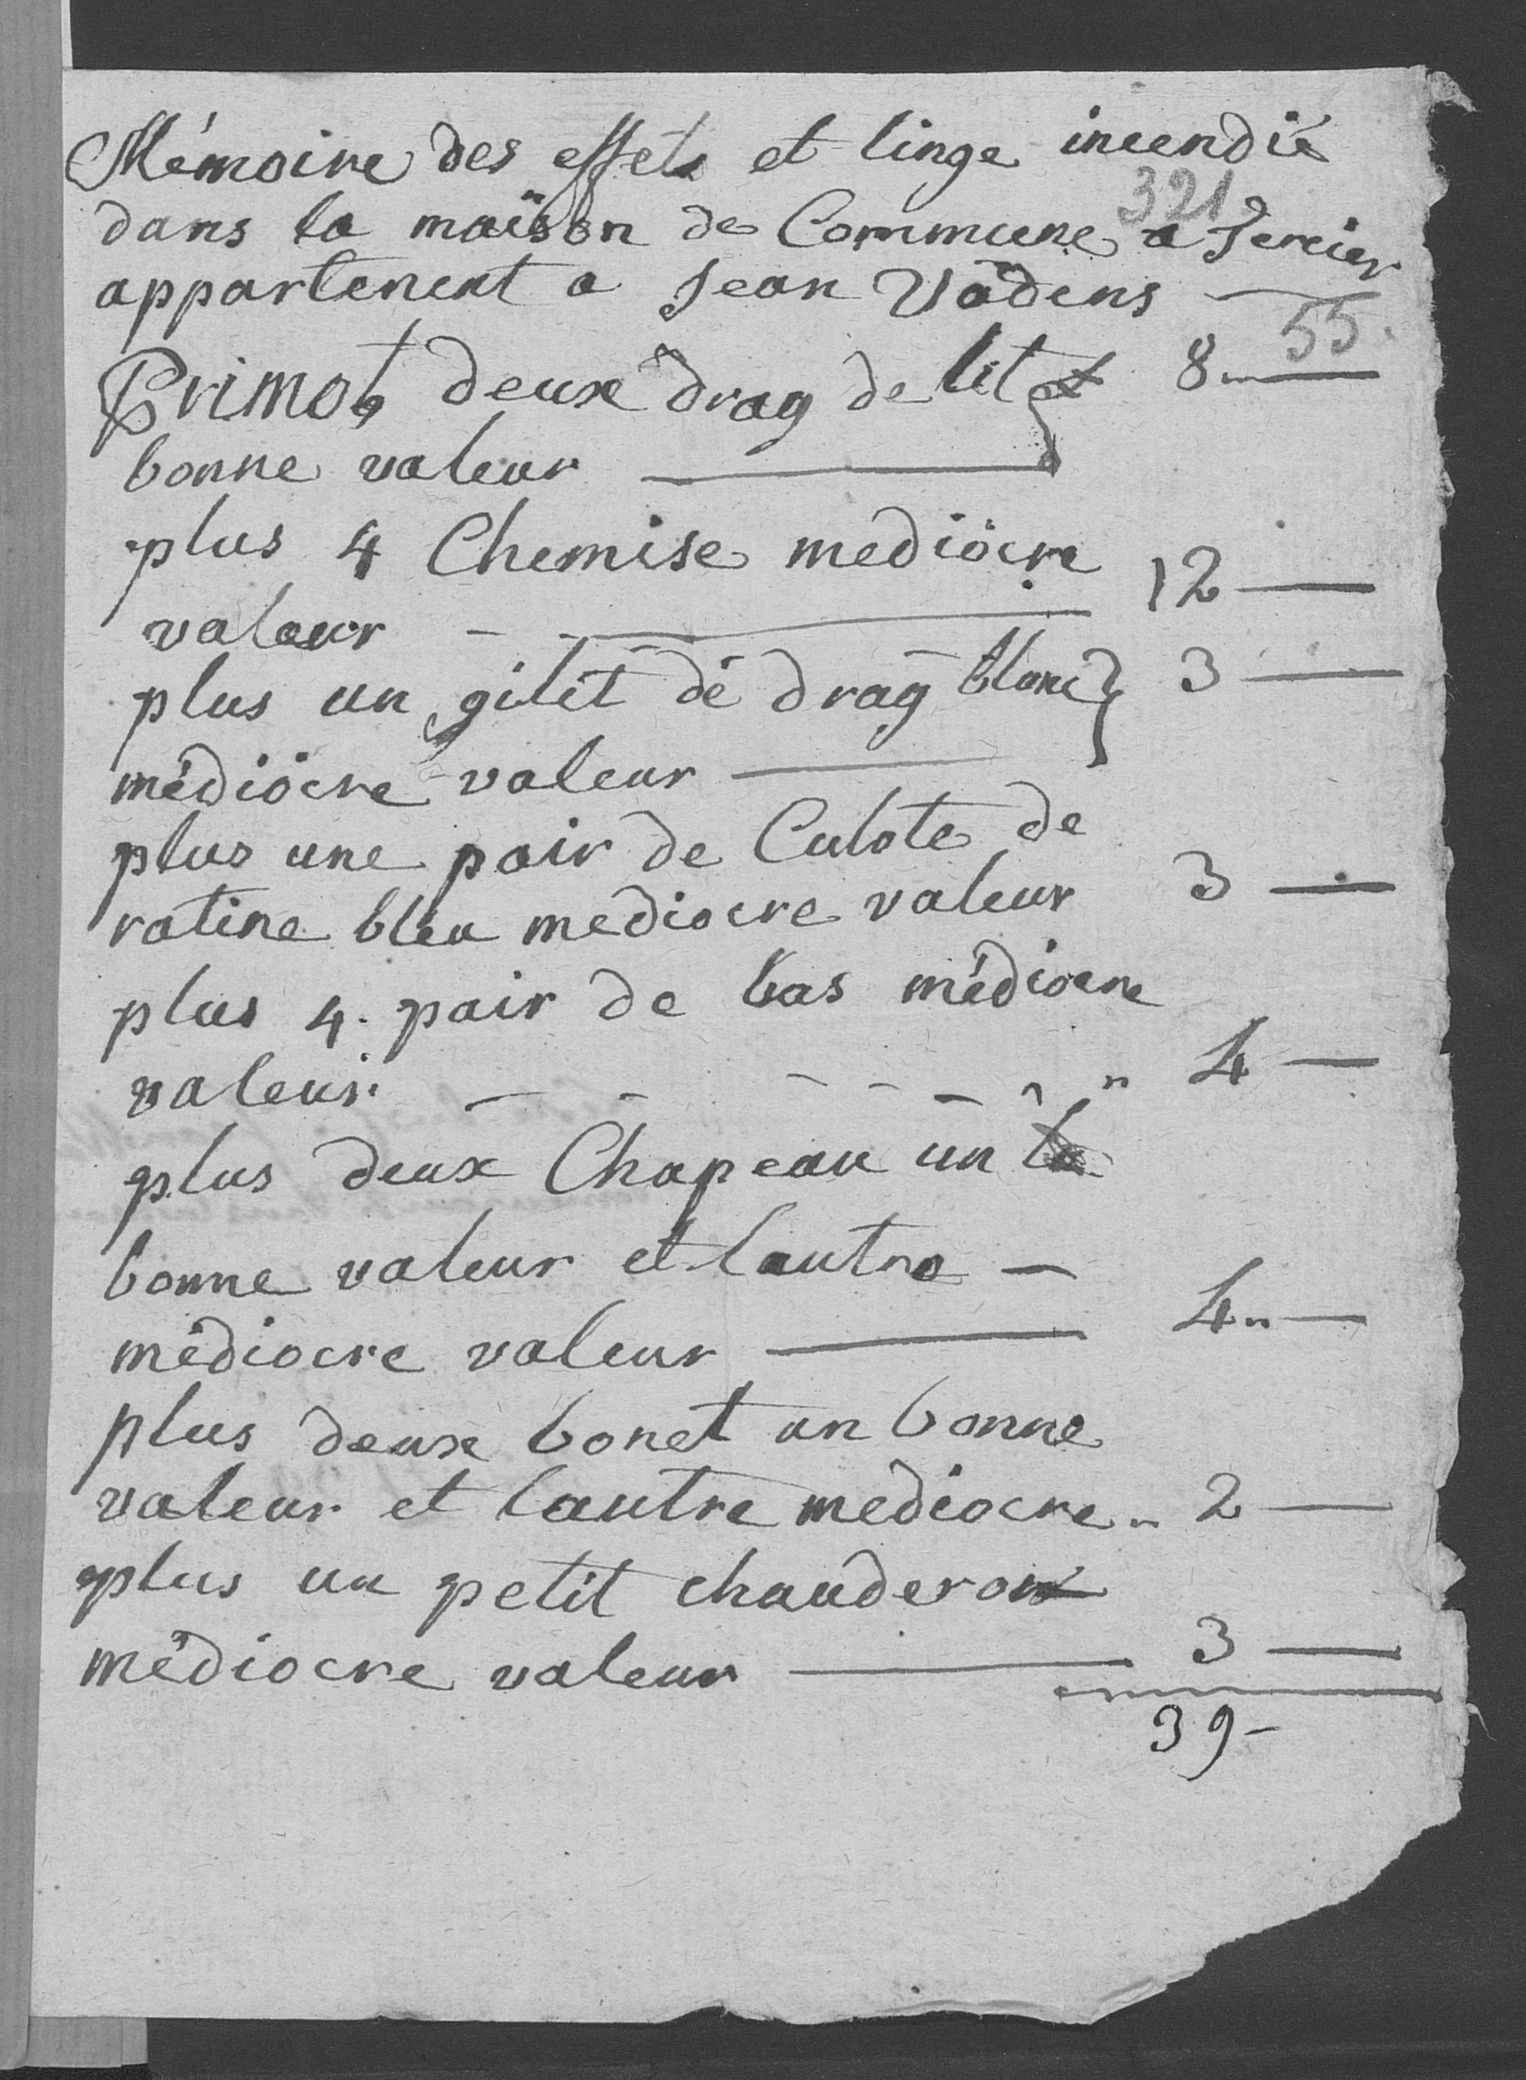 Mémoire des effets et linge incendié
321
dans la maison de Commune a Jercier
appartenent a Jean Vadens
55.
Primot deux drag de lit 8
bonne valeur
plus 4 Chemise mediocre
valeur 12
plus un gilet de drag blanc 3
médiocre valeur
plus une pair de Culote de
ratine bleu mediocre valeur 3
plus 4. pair de bas médiocre
valeur 4
plus deux Chapeau un
bonne valeur et lautre
médiocre valeur 4
plus deux bonet un bonne
valeur et lautre mediocre 2
plus un petit chauderon
médiocre valeur 3
39